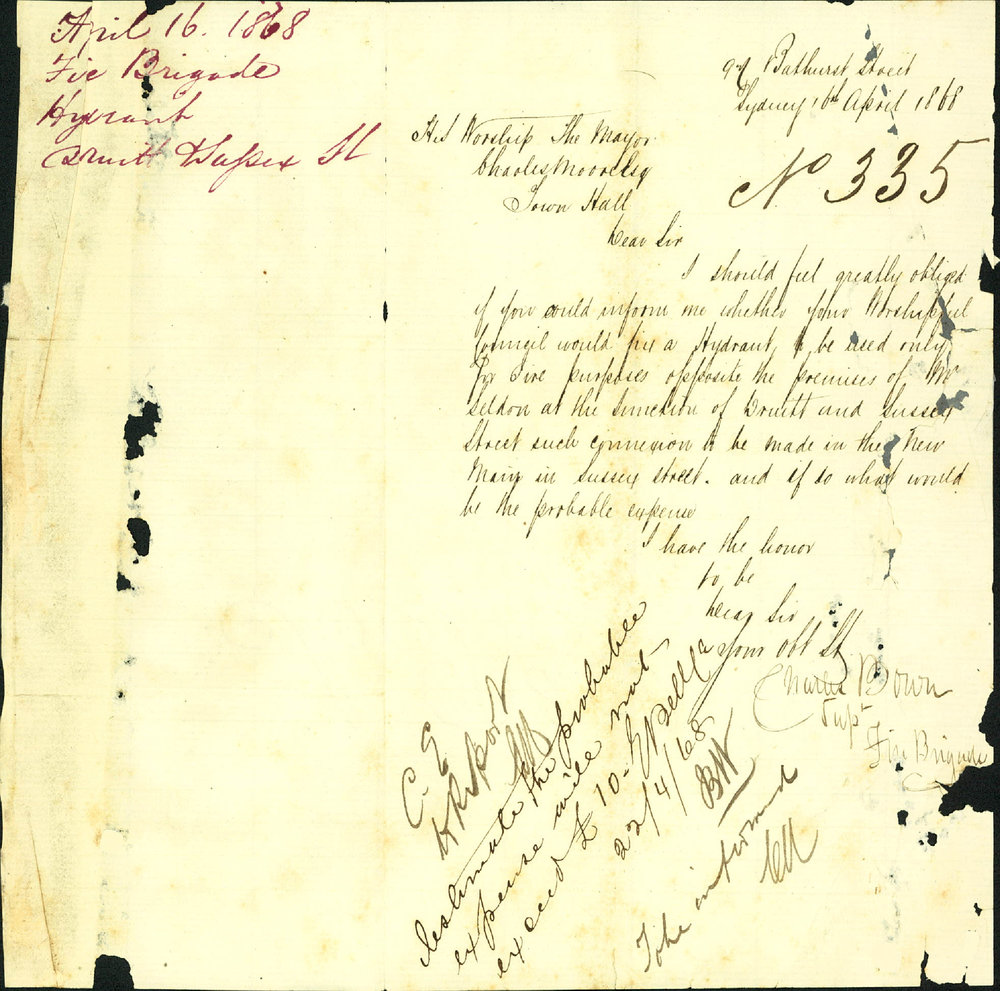 April 16. 1868
Fie Brigade
Hydrant
Druitt & Sussex St
Bathurst Street
Sydney 16th April 1868
No 335
His Worship The Mayor
Charles Moore Esq
Town Hall
Dear Sir
I should feel greatly obliged
if you could inform me whether your Worshipful
Council would fix a Hydrant, to be used only
for Fire purposes opposite the premises of Mr
Seldon at the Junction of Druitt and Sussex
Street such connexion to be made in the New
Main in Sussex street. and if so what would
be the probable expense
I have the honor
to be
Dear Sir
your Obt St
Charles Bown
Supt
Fire Brigade
C. E
to Report
CM
I estimate the probable
expense will not
exceed £10-
22/4/68
To be informed
CM